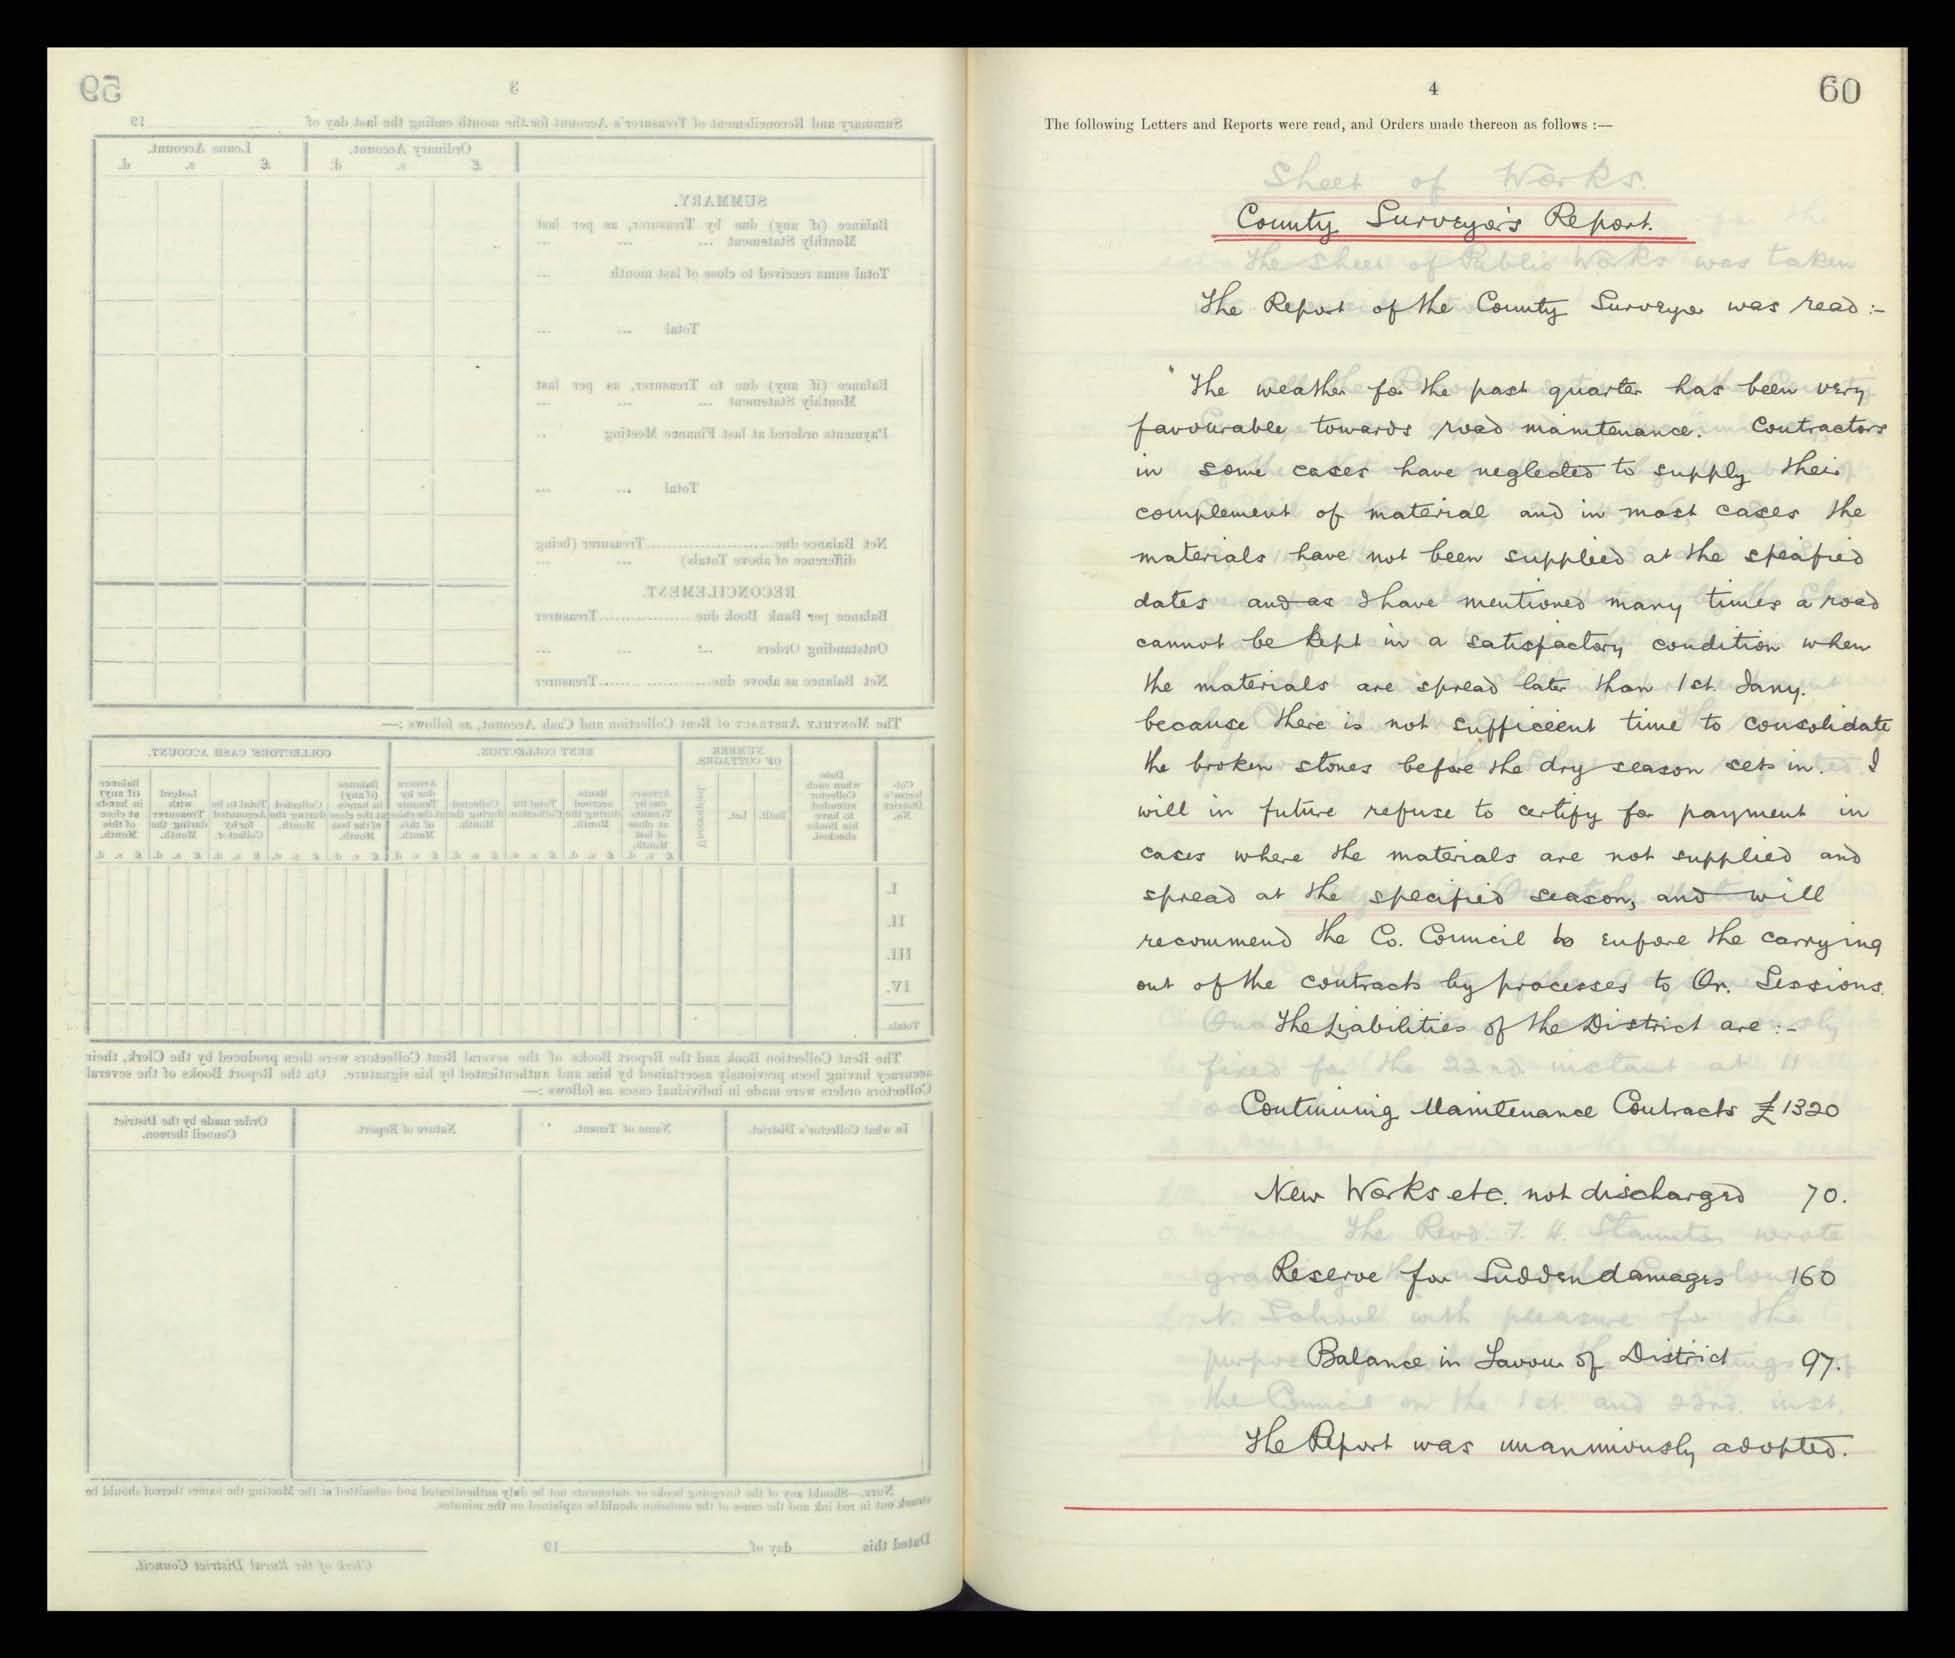 4
60
The following Letters and Reports were read, and Orders made thereon as follows :—
Sheet of Works.
County Surveyor's Report.
The Sheet of Public Works was taken
The Report of the County Surveyor was read :-
"The weather for the past quarter has been very
favourable towards road maintenance. Contractors
in some cases have neglected to supply their
complement of material and in most cases the
materials have not been supplied at the specified
dates and as I have mentioned many times a road
cannot be kept in a satisfactory condition when
the materials are spread later than 1st. Jany.
because there is not sufficient time to consolidate
the broken stones before the dry season sets in. I
will in future refuse to certify for payment in
cases where the materials are not supplied and
spread at the specified season, and will
recommend the Co. Council to enforce the carrying
out of the contracts by processes to Qr. Sessions.
The Liabilities of the District are :-
fixed for the 22nd instant at 11
Continuing Maintenance Contracts £1320
New Works etc. not discharged 70.
The Revd. T. H. Staunton wrote
Reserve for Sudden damages 160
N. School with pleasure for the
Balance in Favour of District 97.
the Council on the 1st. and 22nd. inst.
The Report was unanimously adopted.
59
3
Summary and Reconcilement of Treasurer's Account for the month ending the last day of 19
Ordinary Account. Loans Account.
£ s. d. £ s. d.
SUMMARY.
Balance (if any) due by Treasurer, as per last
Monthly Statement ... ... ...
Total sums received to close of last month ...
Total ... ...
Balance (if any) due to Treasurer, as per last
Monthly Statement ... ... ...
Payments ordered at last Finance Meeting ...
Total ... ...
Net Balance due Treasurer (being
difference of above Totals) ... ...
RECONCILEMENT.
Balance per Bank Book due Treasurer
Outstanding Orders ... ... ...
Net Balance as above due Treasurer
The MONTHLY ABSTRACT of Rent Collection and Cash Account, as follows :—
NUMBER OF COTTAGES. RENT COLLECTION. COLLECTORS CASH ACCOUNT.
I.
II.
III.
IV.
Totals
The Rent Collection Book and the Report Books of the several Rent Collectors were then produced by the Clerk, their
accuracy having been previously ascertained by him and authenticated by his signature. On the Report Books of the several
Collectors orders were made in individual cases as follows :—
In what Collector's District. Name of Tenant. Nature of Report. Order made by the District
Council thereon.
NOTE.—Should any of the foregoing books or statements not be duly authenticated and submitted at the Meeting the names thereof should be
struck out in red ink and the cause of the omission should be explained on the minutes.
Dated this day of 19
Clerk of the Rural District Council.